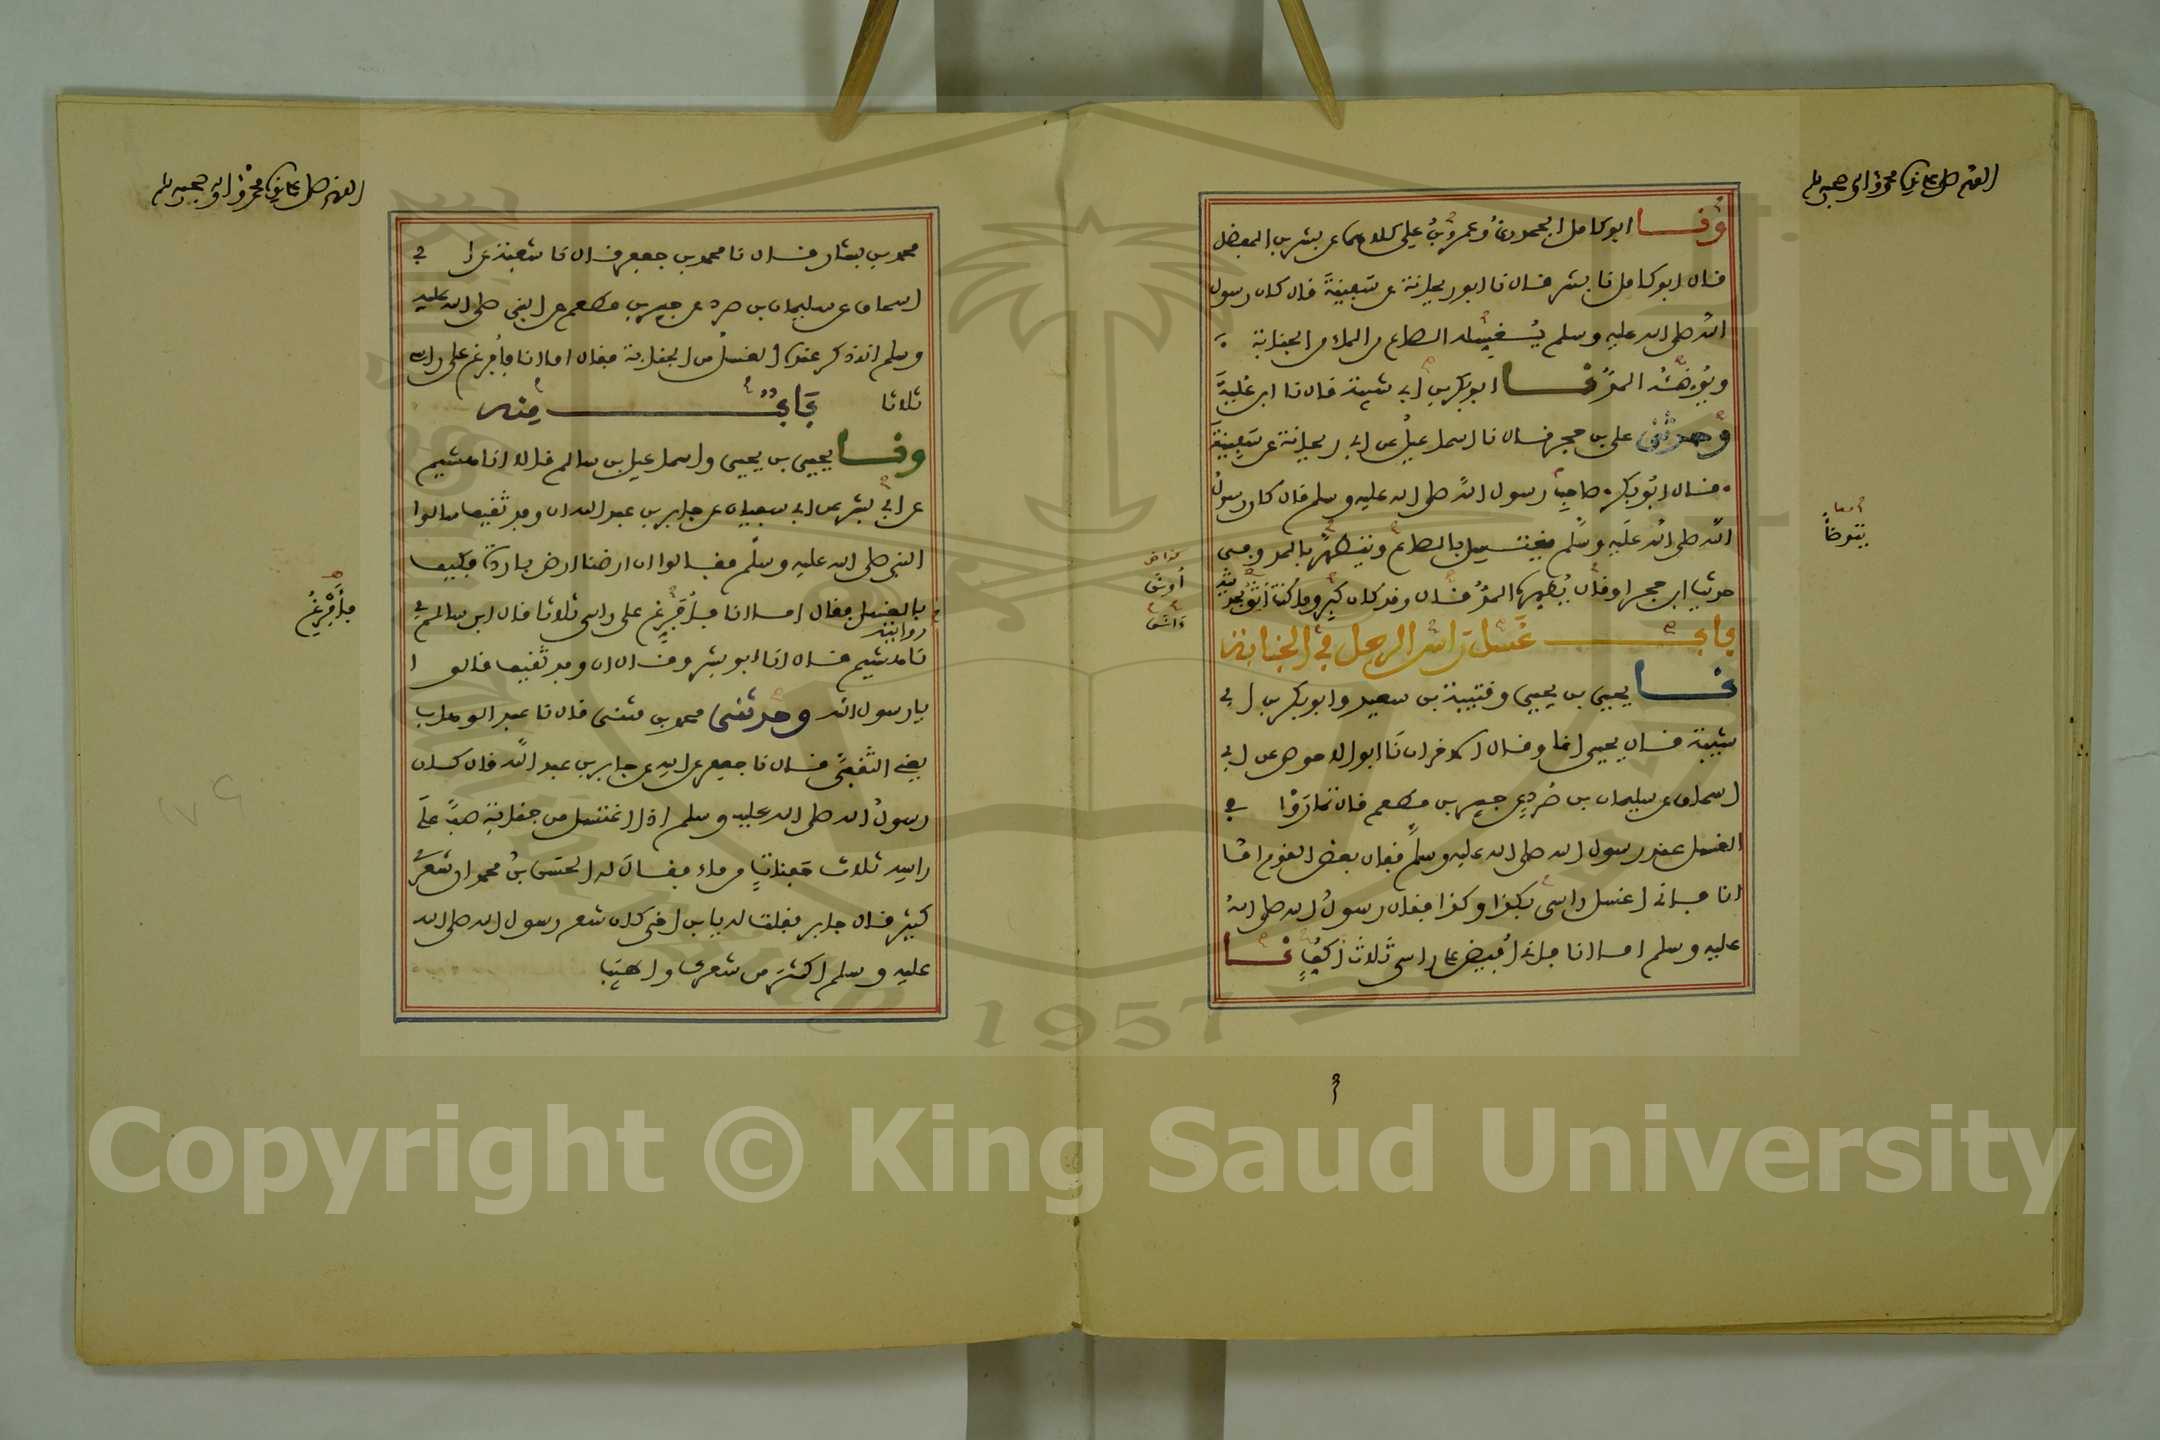 اللهم صل على سيدنا محمد واله وصحبه وسلم
ونا ابو كامل الجحدري وعمرو بن علي كلاهما عن بشر بن المفضل
قال ابو كامل نا بشر قال نا ابو ريحانة عن سفينة قال كان رسول
الله صلى الله عليه وسلم يغسله الصاع من الماء من الجنابة
ويوضئه المد نا ابو بكر بن ابي شيبة قال نا ابن علية
وحدثني علي بن حجر قال نا اسماعيل عن ابي ريحانة عن سفينة
قال ابو بكر صاحب رسول الله صلى الله عليه وسلم قال كان رسول
الله صلى الله عليه وسلم يغتسل بالصاع ويتطهر بالمد وفي
حديث ابن حجر او قال يطهره المد قال وقد كان كبر وما كنت اثق بحديثه
باب غسل راس الرجل في الجنابة
نا يحيى بن يحيى وقتيبة بن سعيد وابو بكر بن ابي
شيبة قال يحيى انا وقال الاخران نا ابو الاحوص عن ابي
اسحاق عن سليمان بن صرد عن جبير بن مطعم قال تماروا في
الغسل عند رسول الله صلى الله عليه وسلم فقال بعض القوم اما
انا فاني اغسل راسي بكذا وكذا فقال رسول الله صلى الله
عليه وسلم اما انا فاني افيض على راسي ثلاث اكف نا
يتوضأ
اللهم صل على سيدنا محمد واله وصحبه وسلم
محمد بن بشار قال نا محمد بن جعفر قال نا شعبة عن ا بي
اسحاق عن سليمان بن صرد عن جبير بن مطعم عن النبي صلى الله عليه
وسلم انه ذكر عنده الغسل من الجنابة فقال اما انا فافرغ على راسي
ثلاثا باب منه
ونا يحيى بن يحيى واسماعيل بن سالم قالا انا هشيم
عن ابي بشر عن ابي سفيان عن جابر بن عبد الله ان وفد ثقيف سالوا
النبي صلى الله عليه وسلم فقالوا ان ارضنا ارض باردة فكيف
بالغسل فقال اما انا فافرغ على راسي ثلاثا قال ابن سالم في
روايته
نا هشيم قال انا ابو بشر وقال ان وفد ثقيف قالوا
يا رسول الله وحدثني محمد بن مثنى قال نا عبد الوهاب
يعني الثقفي قال نا جعفر عن ابيه عن جابر بن عبد الله قال كان
رسول الله صلى الله عليه وسلم اذا اغتسل من جنابة صب على
راسه ثلاث حفنات من ماء فقال له الحسن بن محمد ان شعري
كثير قال جابر فقلت له يا بن اخي كان شعر رسول الله صلى الله
عليه وسلم اكثر من شعرك واطيب
فأفرغ
1957
Copyright © King Saud University